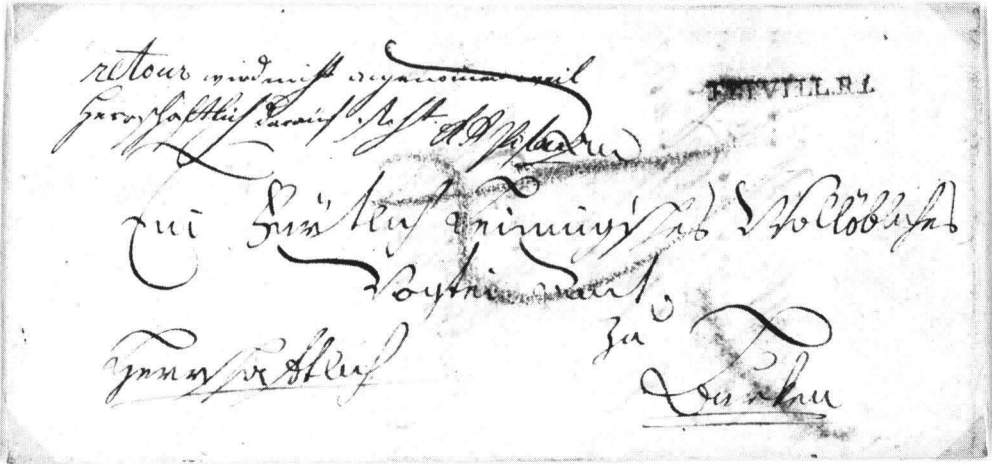 retour wird nicht angenommen weil
Herrschaftlich darauf steht
ELTVILL.R1.
Ein Fürstlich Leiningisches Wollöbliches
Vogtei Amt
zu
Herrschaftlich